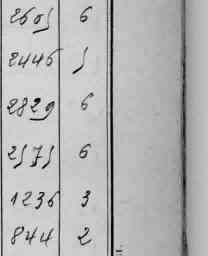 2605 6
2446 5
2829 6
2575 6
1236 3
844 2